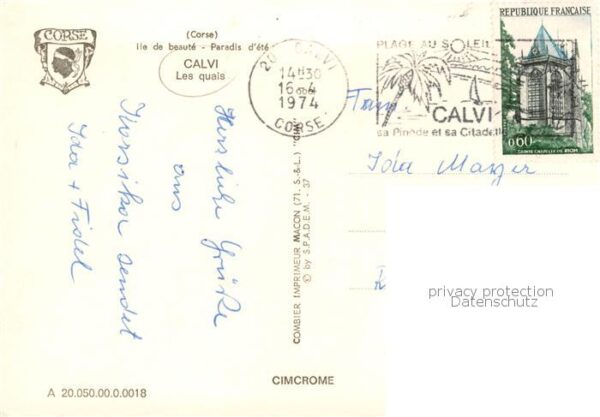 CORSE
(Corse)
Ile de beauté - Paradis d'été
CALVI
Les quais
Herzliche Grüße
aus
Korsika sendet
Ida + Fidel
A 20.050.00.0.0018
COMBIER IMPRIMEUR MACON (71. S.-&-L.)
© by S.P.A.D.E.M. - 37
CIMCROME
20 CALVI
14H30
16-4
1974
CORSE
PLAGE AU SOLEIL
CALVI
sa Pinède et sa Citadelle
REPUBLIQUE FRANÇAISE
0,60
SAINTE CHAPELLE DE RIOM
Fam.
Ida
privacy protection
Datenschutz